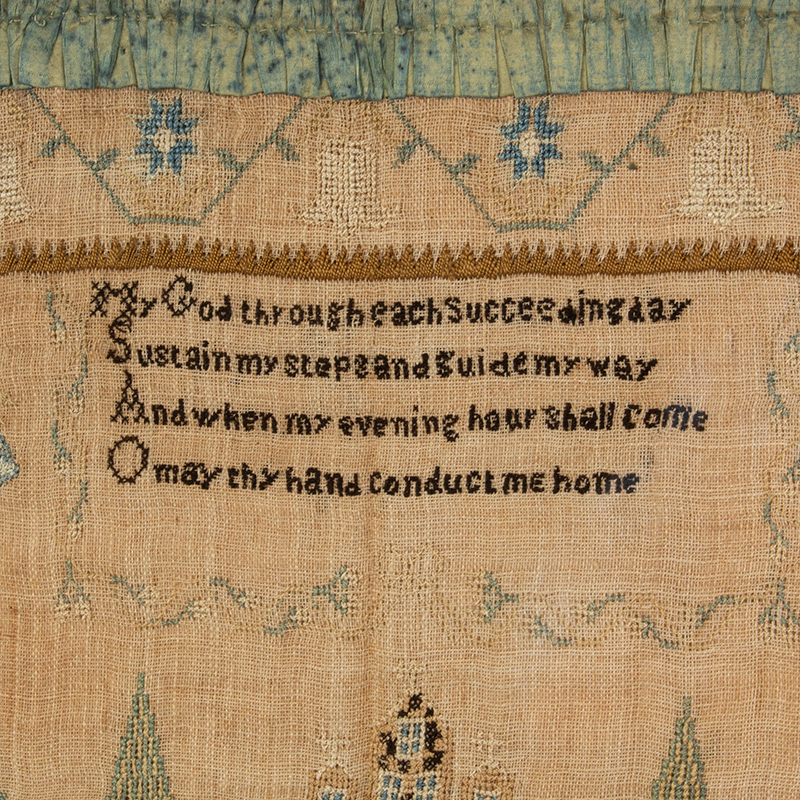 My God through each Succeeding day
Sustain my steps and guide my way
And when my evening hour shall Come
O may thy hand conduct me home